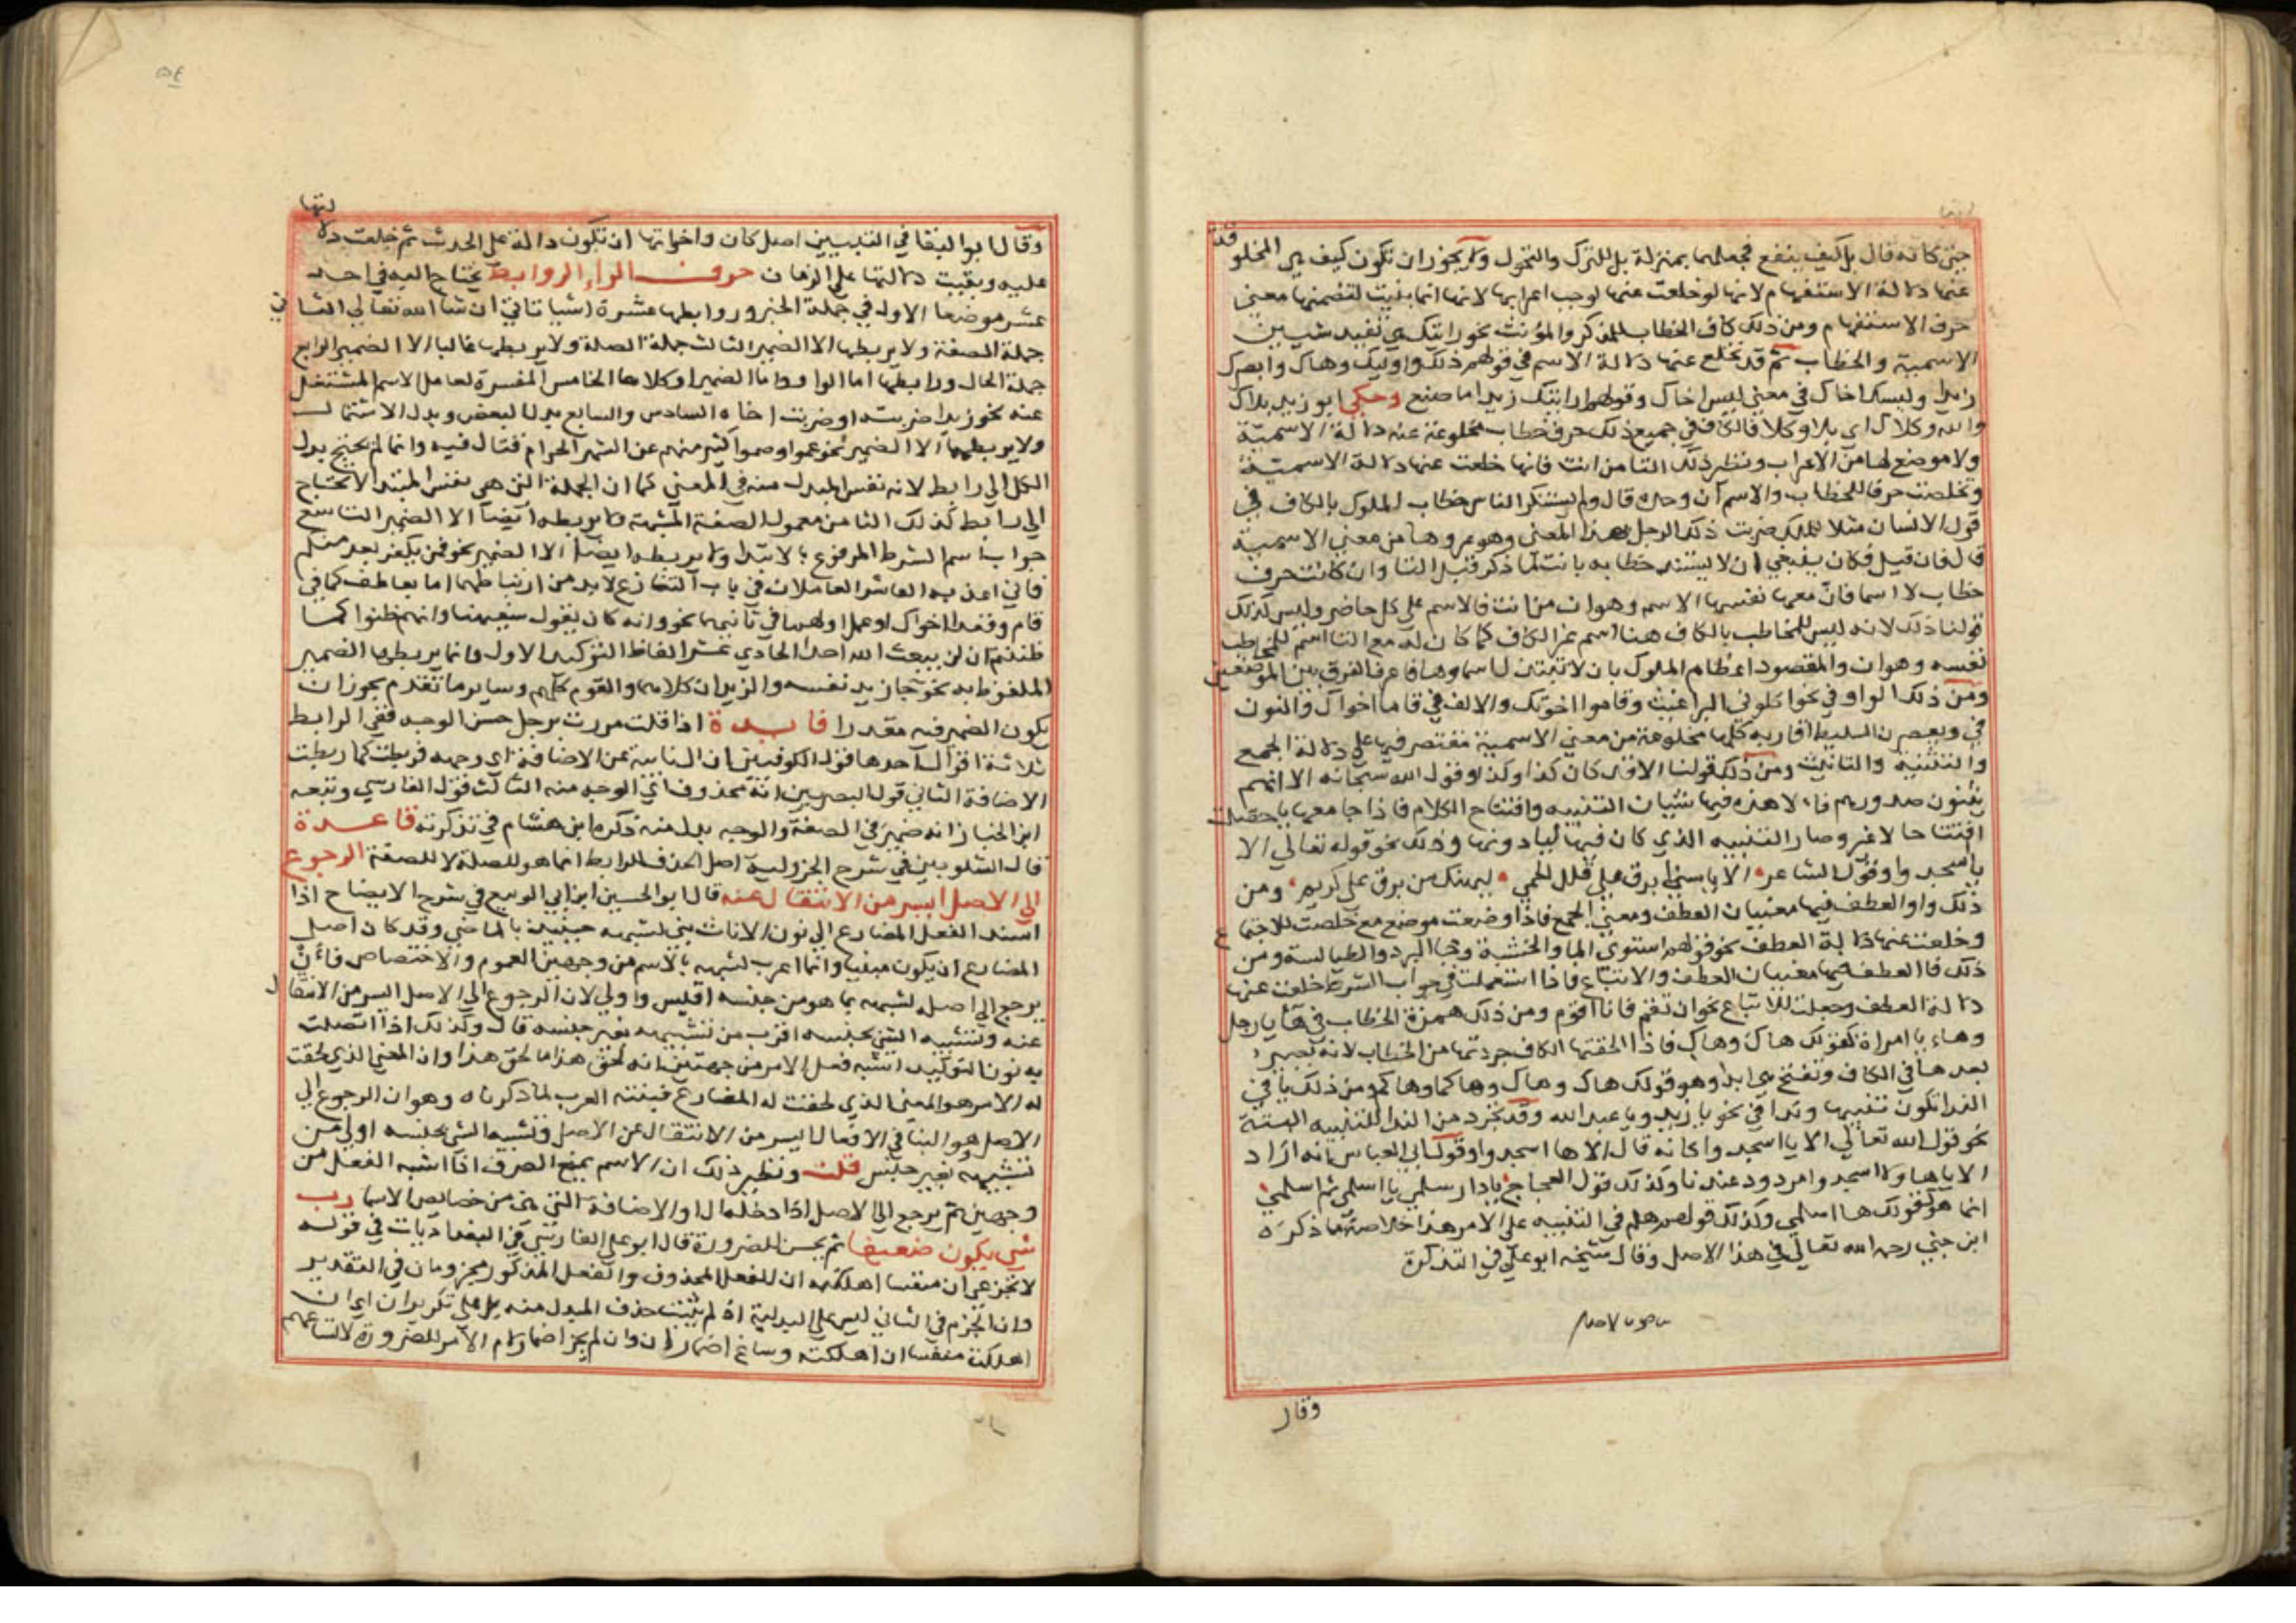 جني كانه قال بل كيف ينفع فجعلهما بمنزلة بل للترك والتحول ولا يجوز ان تكون كيف هي المخلو
قة
عنها دلالة الاستفهام لانها لو خلعت عنها لوجب اعرابها لانها انما بنيت لتضمنها معني
حرف الاستفهام ومن ذلك كاف الخطاب للمذكر والمؤنث نحو رايتك هي تفيد شيين
الاسمية والخطاب ثم قد تخلع عنها دلالة الاسم في قولهم ذلك واوليك وهاك وابصرك
زيدا وليسك اخاك في معني ليس اخاك وقولهم ارايتك زيدا ما صنع وحكي ابو زيد بلاك
والله وكلاك اي بلا وكلا فالكاف في جميع ذلك حرف خطاب مخلوعة عنه دلالة الاسمية
ولا موضع لها من الاعراب ونظير ذلك التا من انت فانها خلعت عنها دلالة الاسمية
وتخلصت حرفا للخطاب والاسم ان وحده قال ولم يستنكر الناس خطاب الملوك بالكاف في
قول الانسان مثلا للملك ضربت ذلك الرجل لهذا المعني وهو عروها من معني الاسمية
قال فان قيل فكان ينبغي ان لا يستنكر خطابه بانت لما ذكر قبل التا وان كانت حرف
خطاب لا اسما فان معها نفسها الاسم وهو ان من انت فالاسم علي كل حاضر وليس كذلك
قولنا ذلك لانه ليس للمخاطب بالكاف هنا اسم غير الكاف كما كان له مع التا اسم للمخاطب
نفسه وهو ان والمقصود اعظام الملوك بان لا تبتذل اسماوها فاعرف الفرق بين الموضعين
ومن ذلك الواو في نحو اكلوني البراغيث وقاموا اخوتك والالف في قاما اخواك والنون
في ويعصرن السليط اقاربه كلها مخلوعة من معني الاسمية مقتصر فيها علي دلالة الجمع
والتثنية والتانيث ومن ذلك قولنا الا قد كان كذا وكذا وقول الله سبحانه الا انهم
يثنون صدورهم فالا هذه فيها شيئان التنبيه وافتتاح الكلام فاذا جا معها يا خلصت
افتتاحا لا غير وصار التنبيه الذي كان فيها ليا دونها وذلك نحو قوله تعالي الا
يا اسجدوا وقول الشاعر الا يا سنا برق علي قلل الحمي لهنك من برق علي كريم ومن
ذلك واو العطف فيها معنيان العطف ومعني الجمع فاذا وضعت موضع مع خلصت للاجتما
ع
وخلعت عنها دلالة العطف نحو قولهم استوي الما والخشبة وجا البرد والطيالسة ومن
ذلك فا العطف فيها معنيان العطف والاتباع فاذا استعملت في جواب الشرط خلعت عنها
دلالة العطف وجعلت للاتباع نحو ان تقم فانا اقوم ومن ذلك همزة الخطاب في هآ يا رجل
وهاء يا امراة كقولك هاك وهاك فاذا الحقتها الكاف جردتها من الخطاب لانه يصير
بعدها في الكاف وتفتح هي ابدا وهو قولك هاك وهاك وهاكما وهاكم ومن ذلك يا في
الندا تكون تنبيها وندا في نحو يا زيد ويا عبد الله وقد تجرد من الندا للتنبيه البتة
نحو قول الله تعالي الا يا اسجدوا كانه قال الا ها اسجدوا وقول ابي العباس انه اراد
الا يا هاولا اسجدوا مردود عندنا وكذلك قول العجاج يا دار سلمي يا اسلمي ثم اسلمي
انما هو كقولك ها اسلمي وكذلك قولهم هلم في التنبيه علي الامر هذا خلاصة ما ذكره
ابن جني رحمه الله تعالي في هذا الاصل وقال شيخه ابو علي في التذكرة
وقال
لتها
وقال ابو البقا في التبيين اصل كان واخواتها ان تكون دالة علي الحدث ثم خلعت دلا
عليه وبقيت دلالتها علي الزمان حرف الراء الروابط يحتاج اليه في احد
عشر موضعا الاول في جملة الخبر وروابطها عشرة اشيا تاتي ان شا الله تعالي الثا
ني
جملة الصفة ولا يربطها الا الضمير الثالث جملة الصلة ولا يربطها غالبا الا الضمير الرابع
جملة الحال ورابطها اما الواو واما الضمير او كلاهما الخامس المفسرة لعامل الاسم المشتغل
عنه نحو زيدا ضربته او ضربت اخاه السادس والسابع بدل البعض وبدل الاشتمال
ولا يربطهما الا الضمير نحو عموا وصموا كثير منهم عن الشهر الحرام قتال فيه وانما لم يحتج بدل
الكل الي رابط لانه نفس المبدل منه في المعني كما ان الجملة التي هي نفس المبتدا لا تحتاج
الي رابط كذلك الثامن معمول الصفة المشبهة ولا يربطه ايضا الا الضمير التاسع
جواب اسم الشرط المرفوع بالابتدا ولا يربطه ايضا الا الضمير نحو فمن يكفر بعد منكم
فاني اعذبه العاشر العاملان في باب التنازع لا بد من ارتباطهما اما بعاطف كما في
قام وقعدا اخواك او عمل اولهما في ثانيهما نحو وانه كان يقول سفيهنا وانهم ظنوا كما
ظننتم ان لن يبعث الله احدا الحادي عشر الفاظ التوكيد الاول وانما يربطها الضمير
الملفوظ به نحو جا زيد نفسه والزيدان كلاهما والقوم كلهم وساير ما تقدم يجوز ان
يكون الضمير فيه مقدرا فايدة اذا قلت مررت برجل حسن الوجه ففي الرابط
ثلاثة اقوال احدها قول الكوفيين ان ال نايبة عن الاضافة اي وجهه فربطت كما ربطت
الاضافة الثاني قول البصريين انه محذوف اي الوجه منه الثالث قول الفارسي وتبعه
ابن الخباز انه ضمير في الصفة والوجه بدل منه ذكره ابن هشام في تذكرته قاعدة
قال الشلوبين في شرح الجزولية اصل الحذف للرابط انما هو للصلة لا للصفة الرجوع
الي الاصل ايسر من الانتقال عنه قال ابو الحسين ابن ابي الربيع في شرح الايضاح اذا
اسند الفعل المضارع الي نون الاناث بني لشبهه حينيذ بالماضي وقد كان اصل
المضارع ان يكون مبنيا وانما اعرب لشبهه بالاسم من وجهين العموم والاختصاص فلان
يرجع الي اصله لشبهه بما هو من جنسه اقيس واولي لان الرجوع الي الاصل ايسر من الانتقا
ل
عنه وتشبيه الشي بجنسه اقرب من تشبيهه بغير جنسه قال وكذلك اذا اتصلت
به نون التوكيد اشبه فعل الامر من جهتين انه لحق هذا ما لحق هذا وان المعني الذي لحقت
له الامر هو المعني الذي لحقت له المضارع فبنته العرب لما ذكرناه وهو ان الرجوع الي
الاصل هو البنا في الافعال ايسر من الانتقال عن الاصل وتشبيه الشي بجنسه اولي من
تشبيهه بغير جنس قلت ونظير ذلك ان الاسم يمنع الصرف اذا اشبه الفعل من
وجهين ثم يرجع الي الاصل اذا دخله ال او الاضافة التي هي من خصايص الاسما رب
شي يكون ضعيفا ثم يحسن للضرورة قال ابو علي الفارسي في البغداديات في قوله
لا تجزعي ان منفسا اهلكته ان الفعل المحذوف والفعل المذكور مجزومان في التقدير
وان انجزم في الثاني ليس علي البدلية اذ لم يثبت حذف المبدل منه بل علي تكرير ان اي ان
اهلكت منفسا ان اهلكته وساغ اضمار ان وان لم يجز اضمار لام الامر للضرورة لاتساعهم